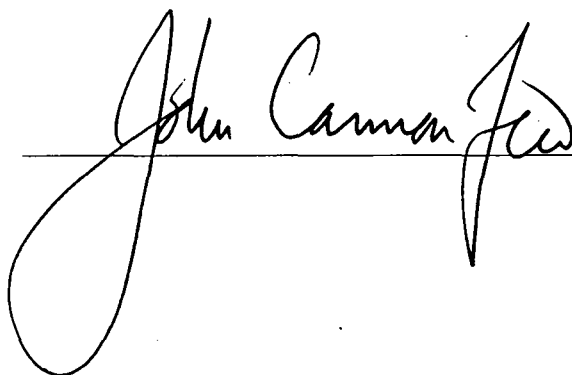 John Cannon